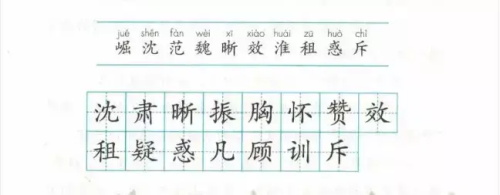 jué shěn fàn wèi xī xiào huái zū huò chì
崛 沈 范 魏 晰 效 淮 租 惑 斥
沈 肃 晰 振 胸 怀 赞 效
租 疑 惑 凡 顾 训 斥